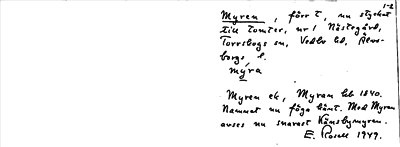 1-2
Myren, förr t, nu stycket
till tomter, nr 1 Nästegård,
Torrsbogs sn, Vedbo hd, Älvs-
borgs l.
myra
Myren ek, Myran hb 1840.
Namnet nu föga känt. Med Myren
avses nu snarast Känsbymyren.
E. Rosell 1949.